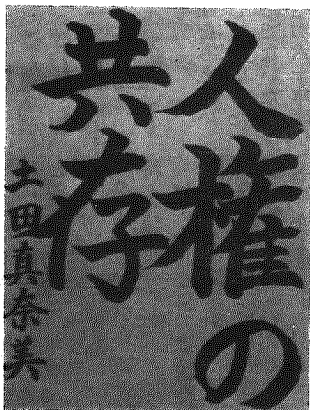 人権の
共存
土田真奈美